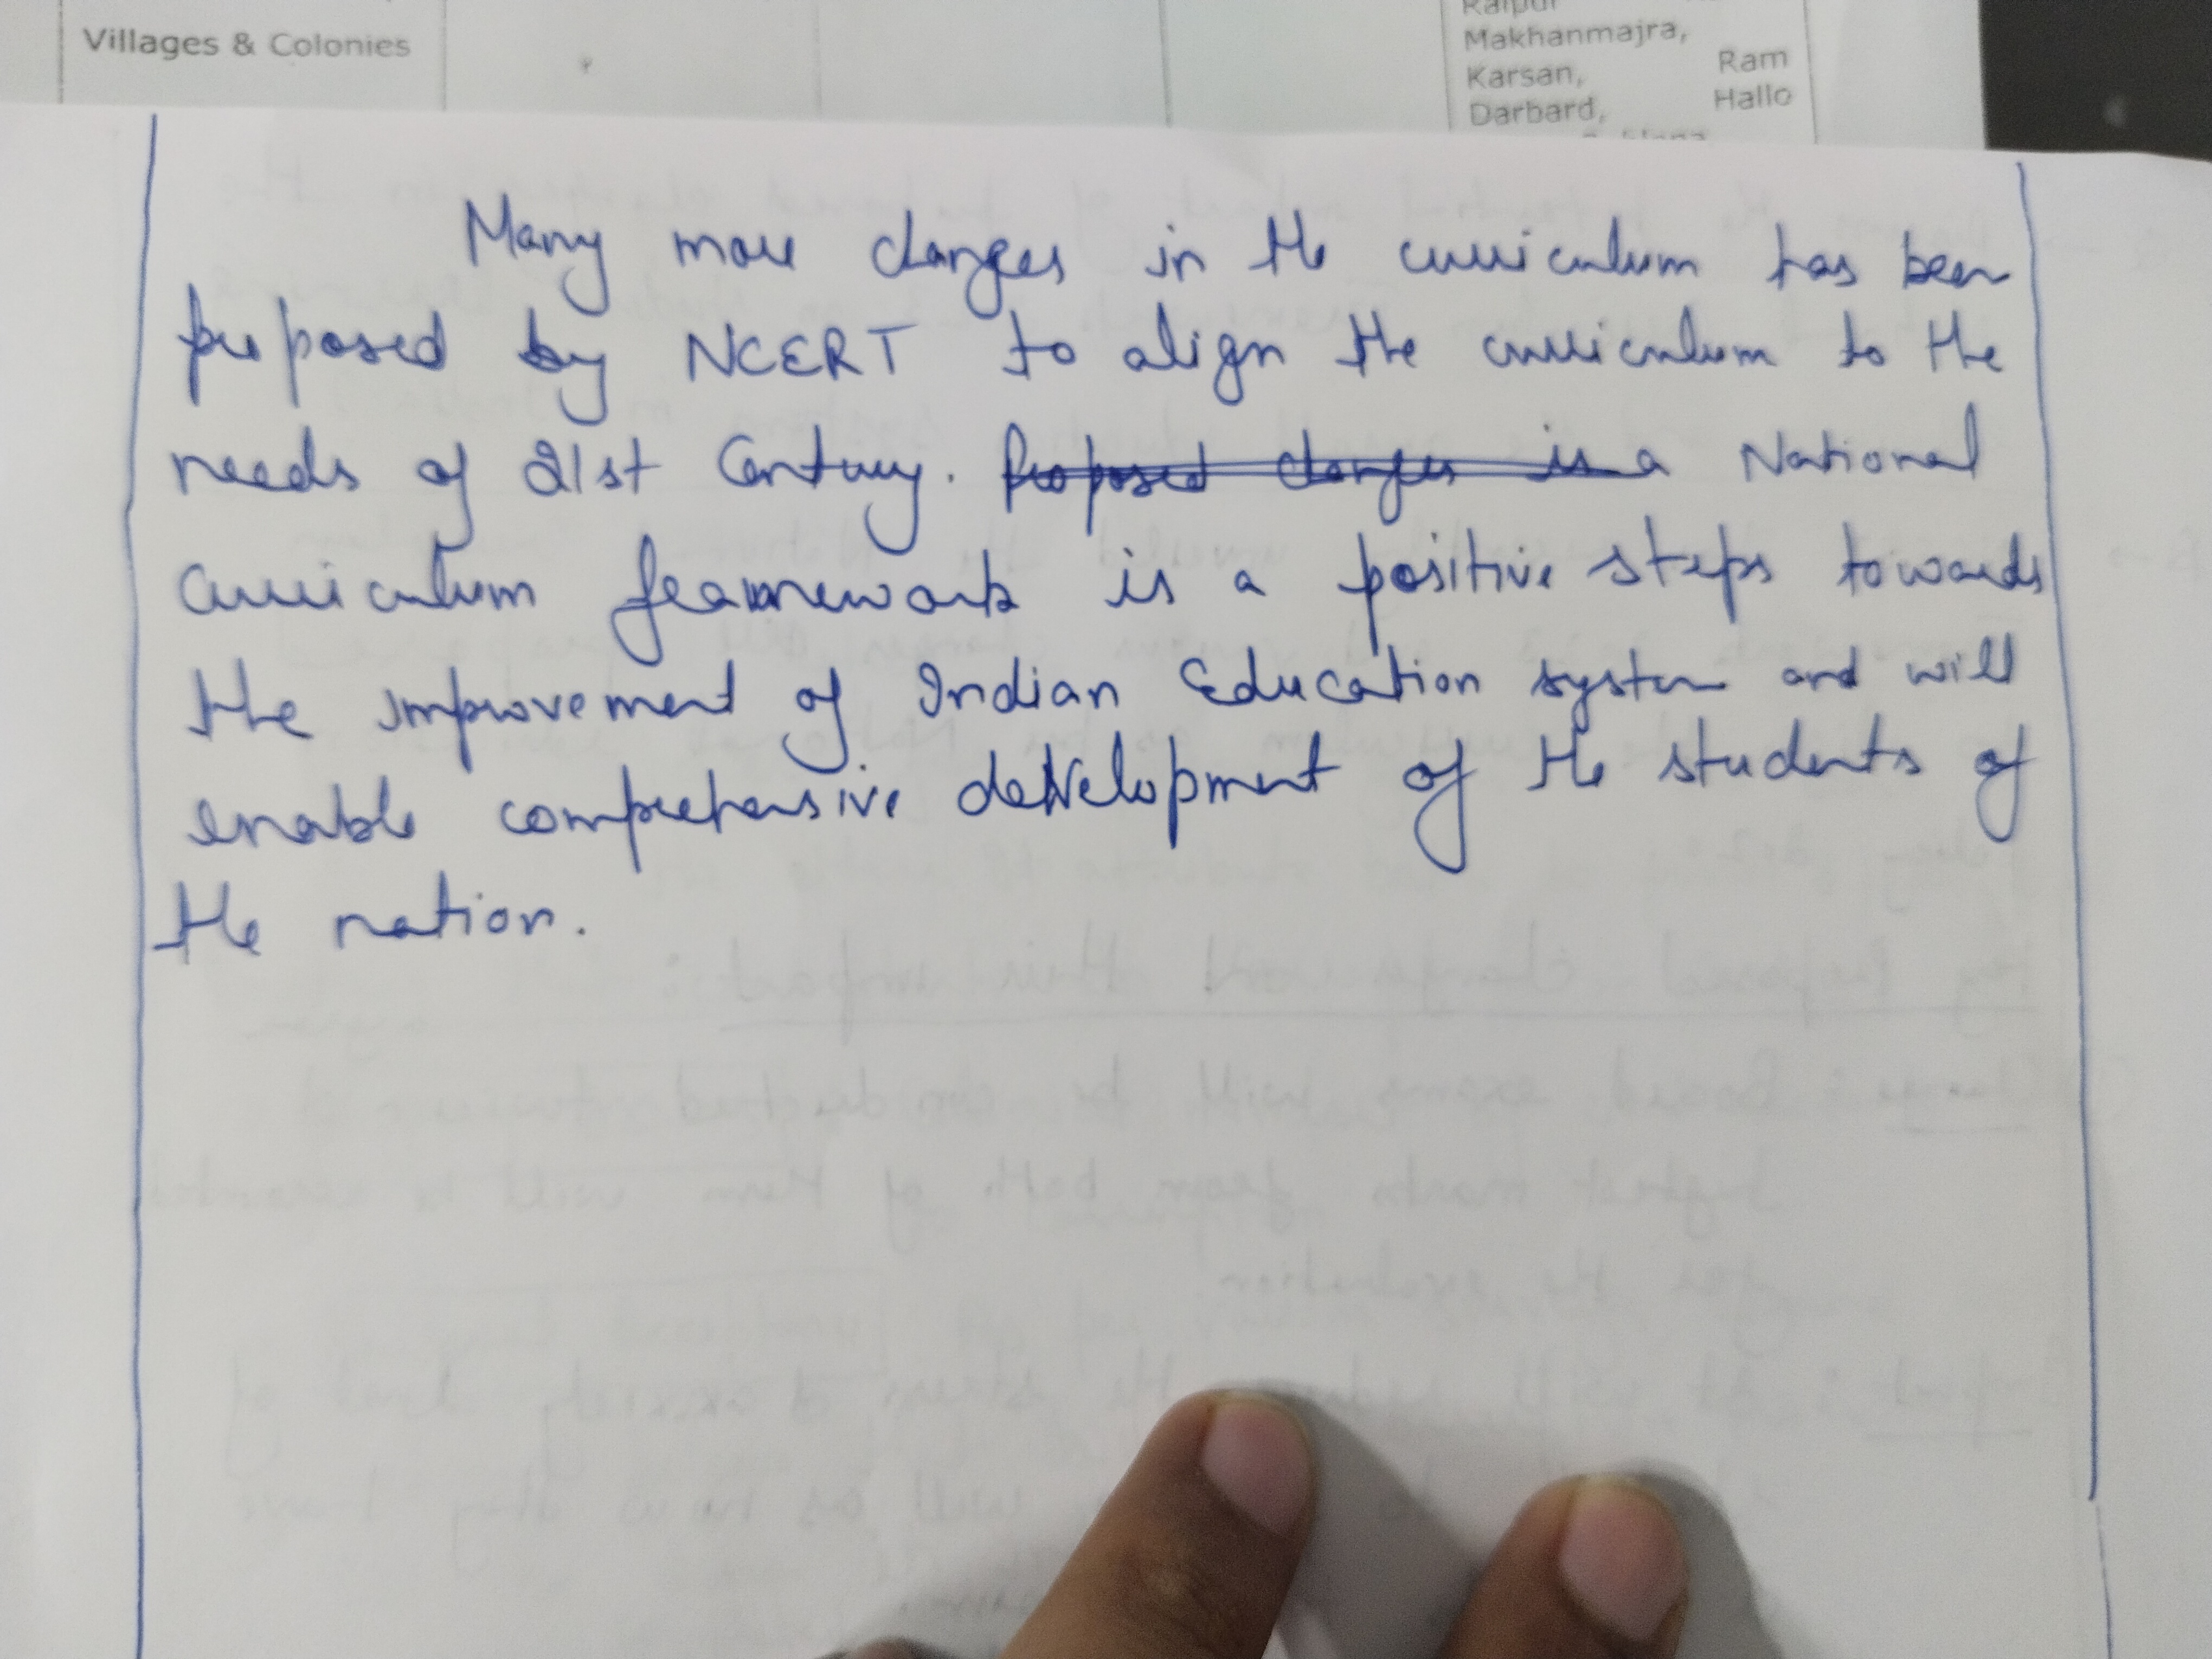 Villages & Colonies
Makhanmajra,
Karsan, Ram
Darbard, Hallo
Many more changes in the curriculum has been
proposed by NCERT to align the curriculum to the
needs of 21st Century. Proposed changes is a National
Curriculum framework is a positive steps towards
the improvement of Indian Education system and will
enable comprehensive development of the students of
the nation.